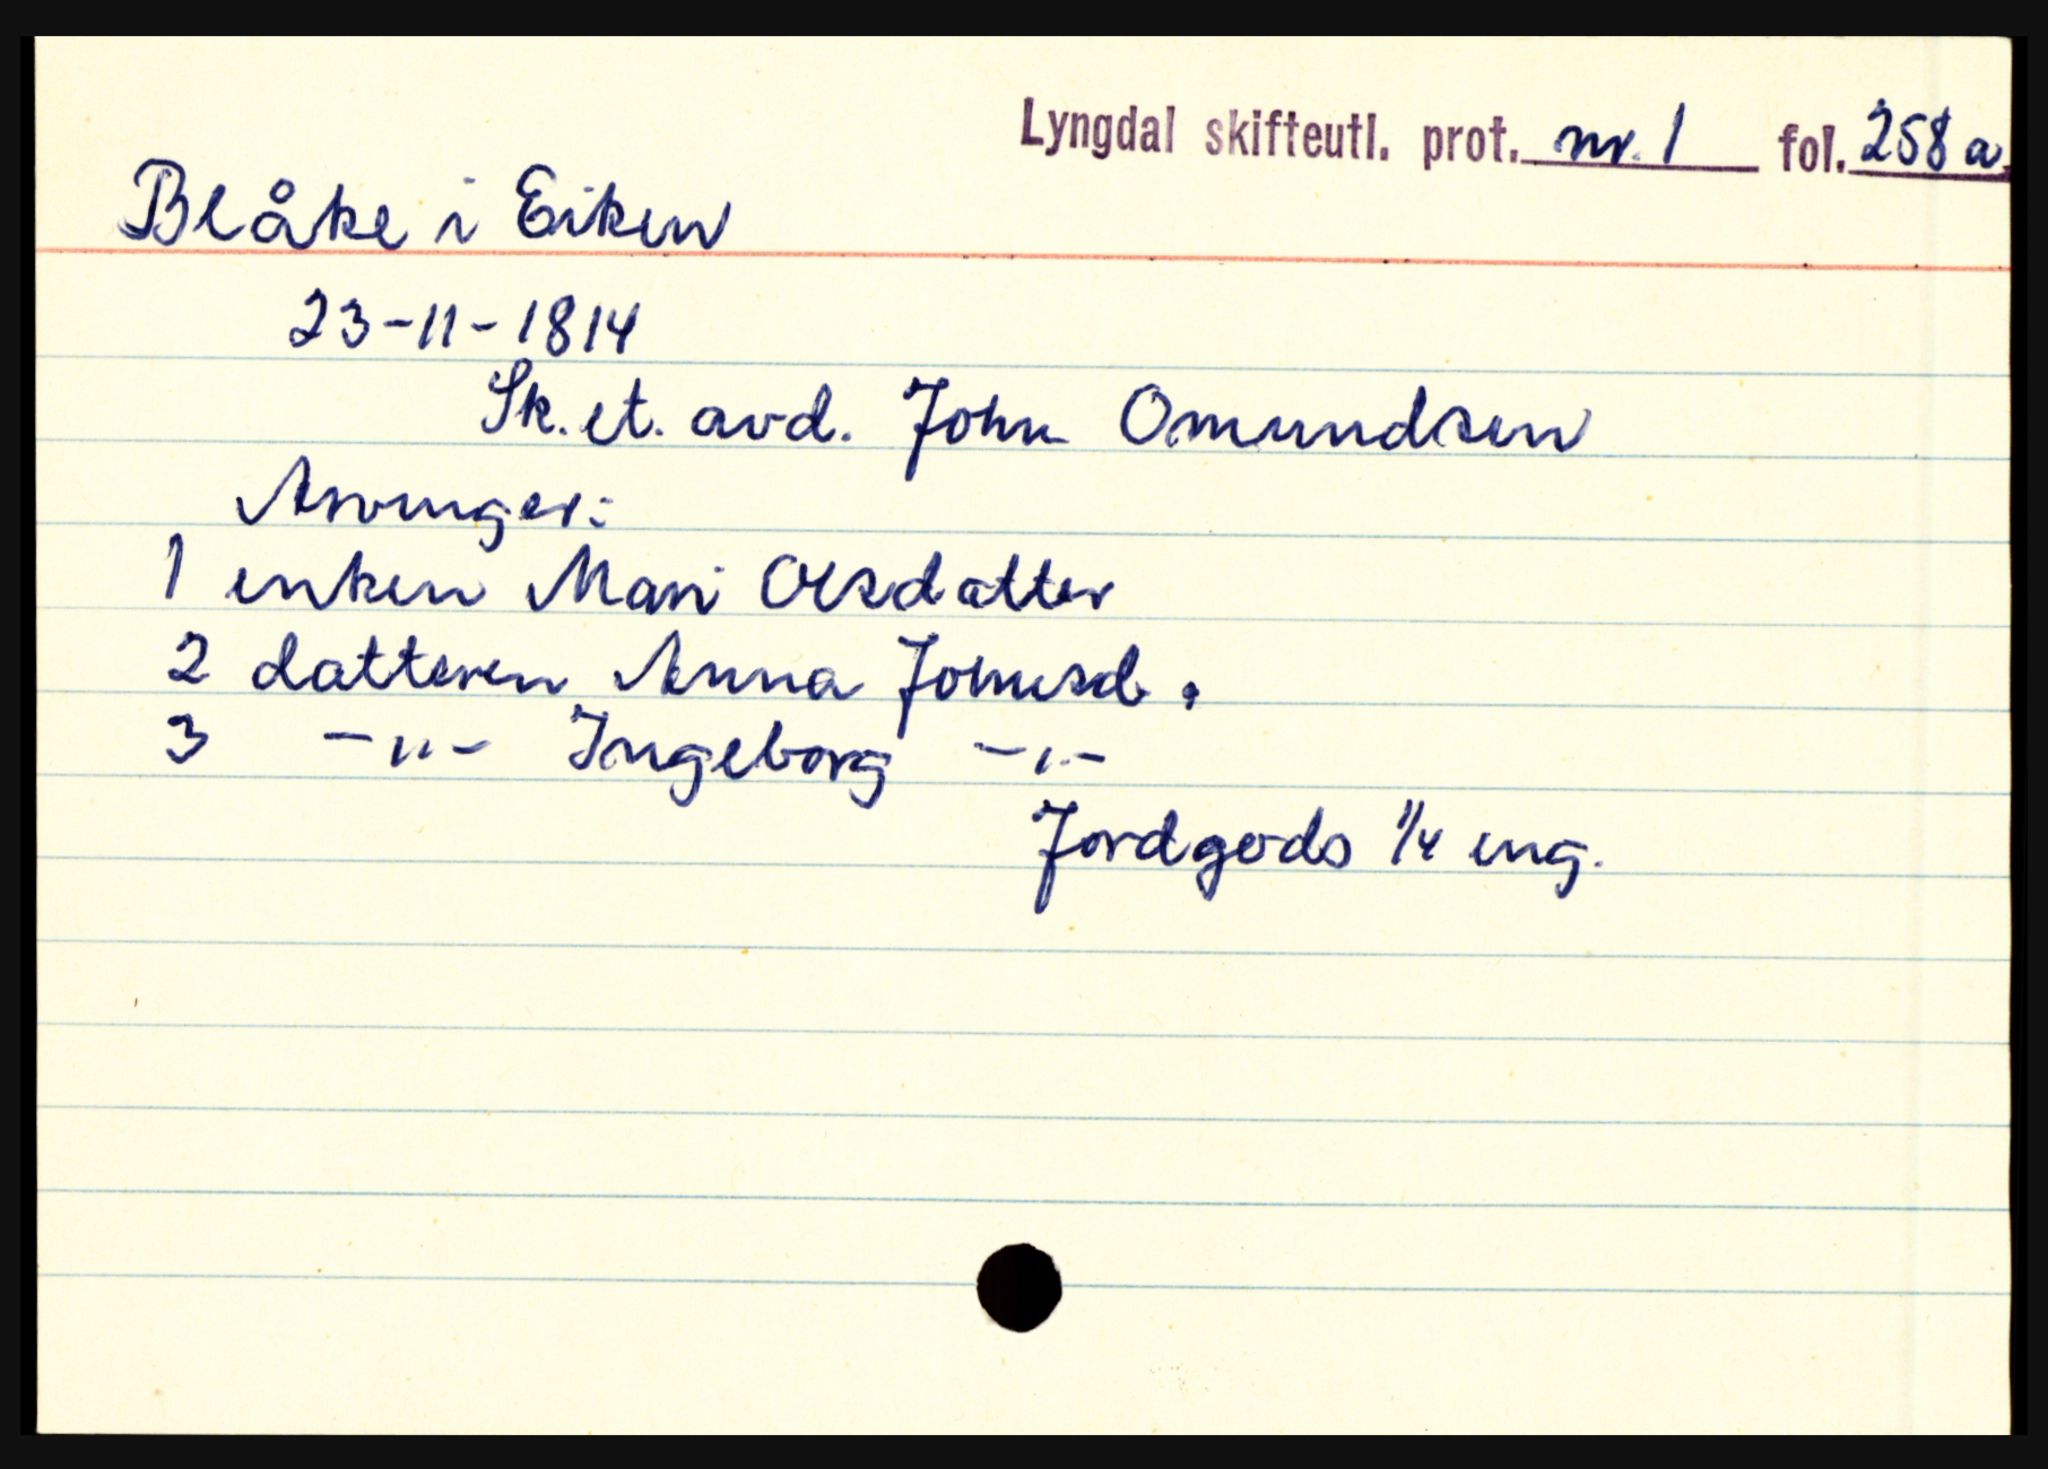 Lyngdal skifteutl. prot. nr. 1 fol. 258 a.
Blåke i Eiken
23-11-1814
Sk. et. avd. John Omundsen
Arvinger:
1 enken Mari Olsdatter
2 datteren Anna Johnsd.
3 -"- Ingeborg -"-
Jordgods 1/4 eng.